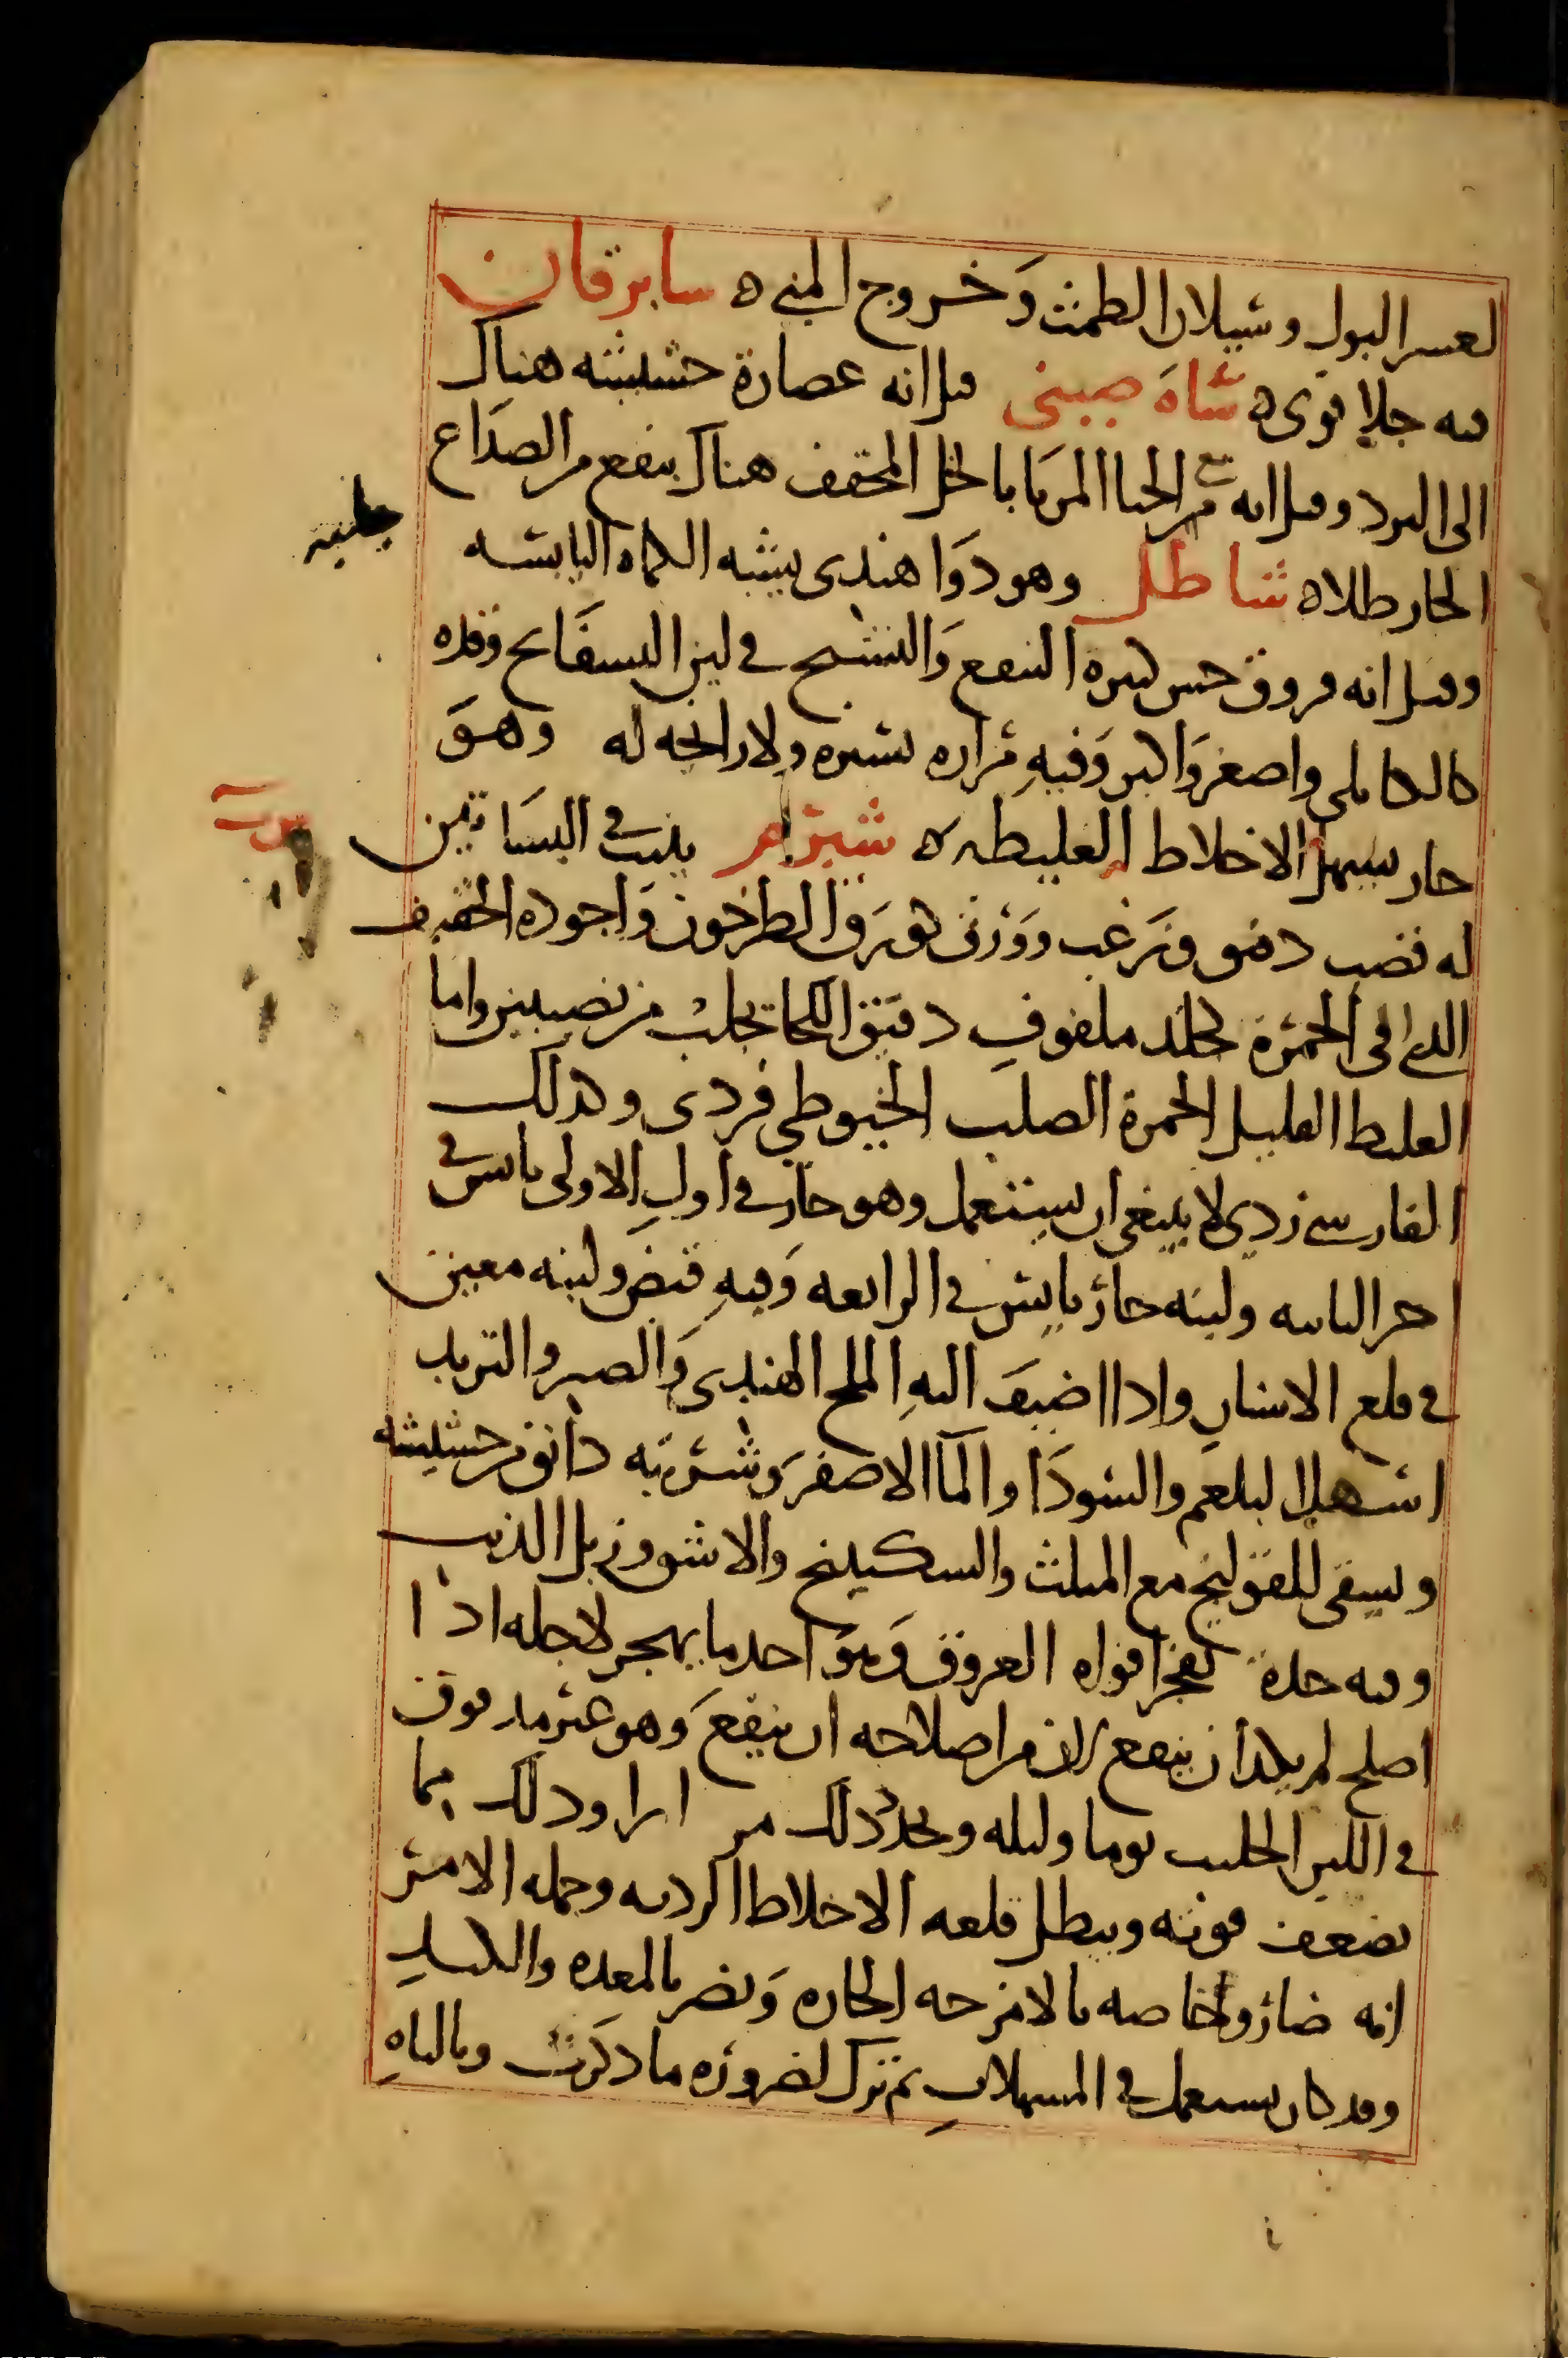 لعسر البول وسيلان الطمث وخروج المني ه سابرقان
فيه جلا قوى ه شاه صيني قيل انه عصارة حشيشه هناك
الى البرد وقيل انه من الحنا المربا بالخل المجفف هناك ينفع من الصداع
الحار طلا ه شاطل وهو دوا هندى يشبه الكماه اليابسه
وقيل انه عروق خس كثيره التبقع والتشنج في لين البسفايج وقده
كالكاملى واصغر واكبر وفيه مراره يسيره ولا رائحه له وهو
حار يسهل الاخلاط الغليظه ه شبرم ينبت في البساتين
له قضب دقيق وزغب وورق كورق الطرخون واجوده الخفيف
الذي الى الحمرة كجلد ملفوف دقيق اللحا تجلب من نصيبين واما
الغليظ القليل الحمرة الصلب الخيوطي فردى وكذلك
الفارسي ردي لا ينبغي ان يستعمل وهو حار في اول الاولى يابس في
اخر الثانيه ولبنه حار يابس في الرابعه وفيه قبض ولبنه معين
في قلع الاسنان واذا اضيف اليه الملح الهندى والصبر والتربد
اسهل البلغم والسودا والما الاصفر وشربته دانق من حشيشه
ويسقى للقولنج مع المثلث والسكبينج والاشق وزبل الذيب
وفيه حدة تفجر افواه العروق وهو احد ما يهجر لاجله اذا
اصلح لم يكد ان ينفع لان من اصلاحه ان ينقع وهو غير مدقوق
في اللبن الحليب يوما وليله ويجدد ذلك مر ارا وذلك مما
يضعف قوته ويبطل قلعه الاخلاط الرديه وجمله الامر
انه ضار وخاصه بالامزجه الحاره ويضر بالمعده والكبد
وقد كان يستعمل في المسهلات ثم ترك لضروره ما ذكرت وبالباه